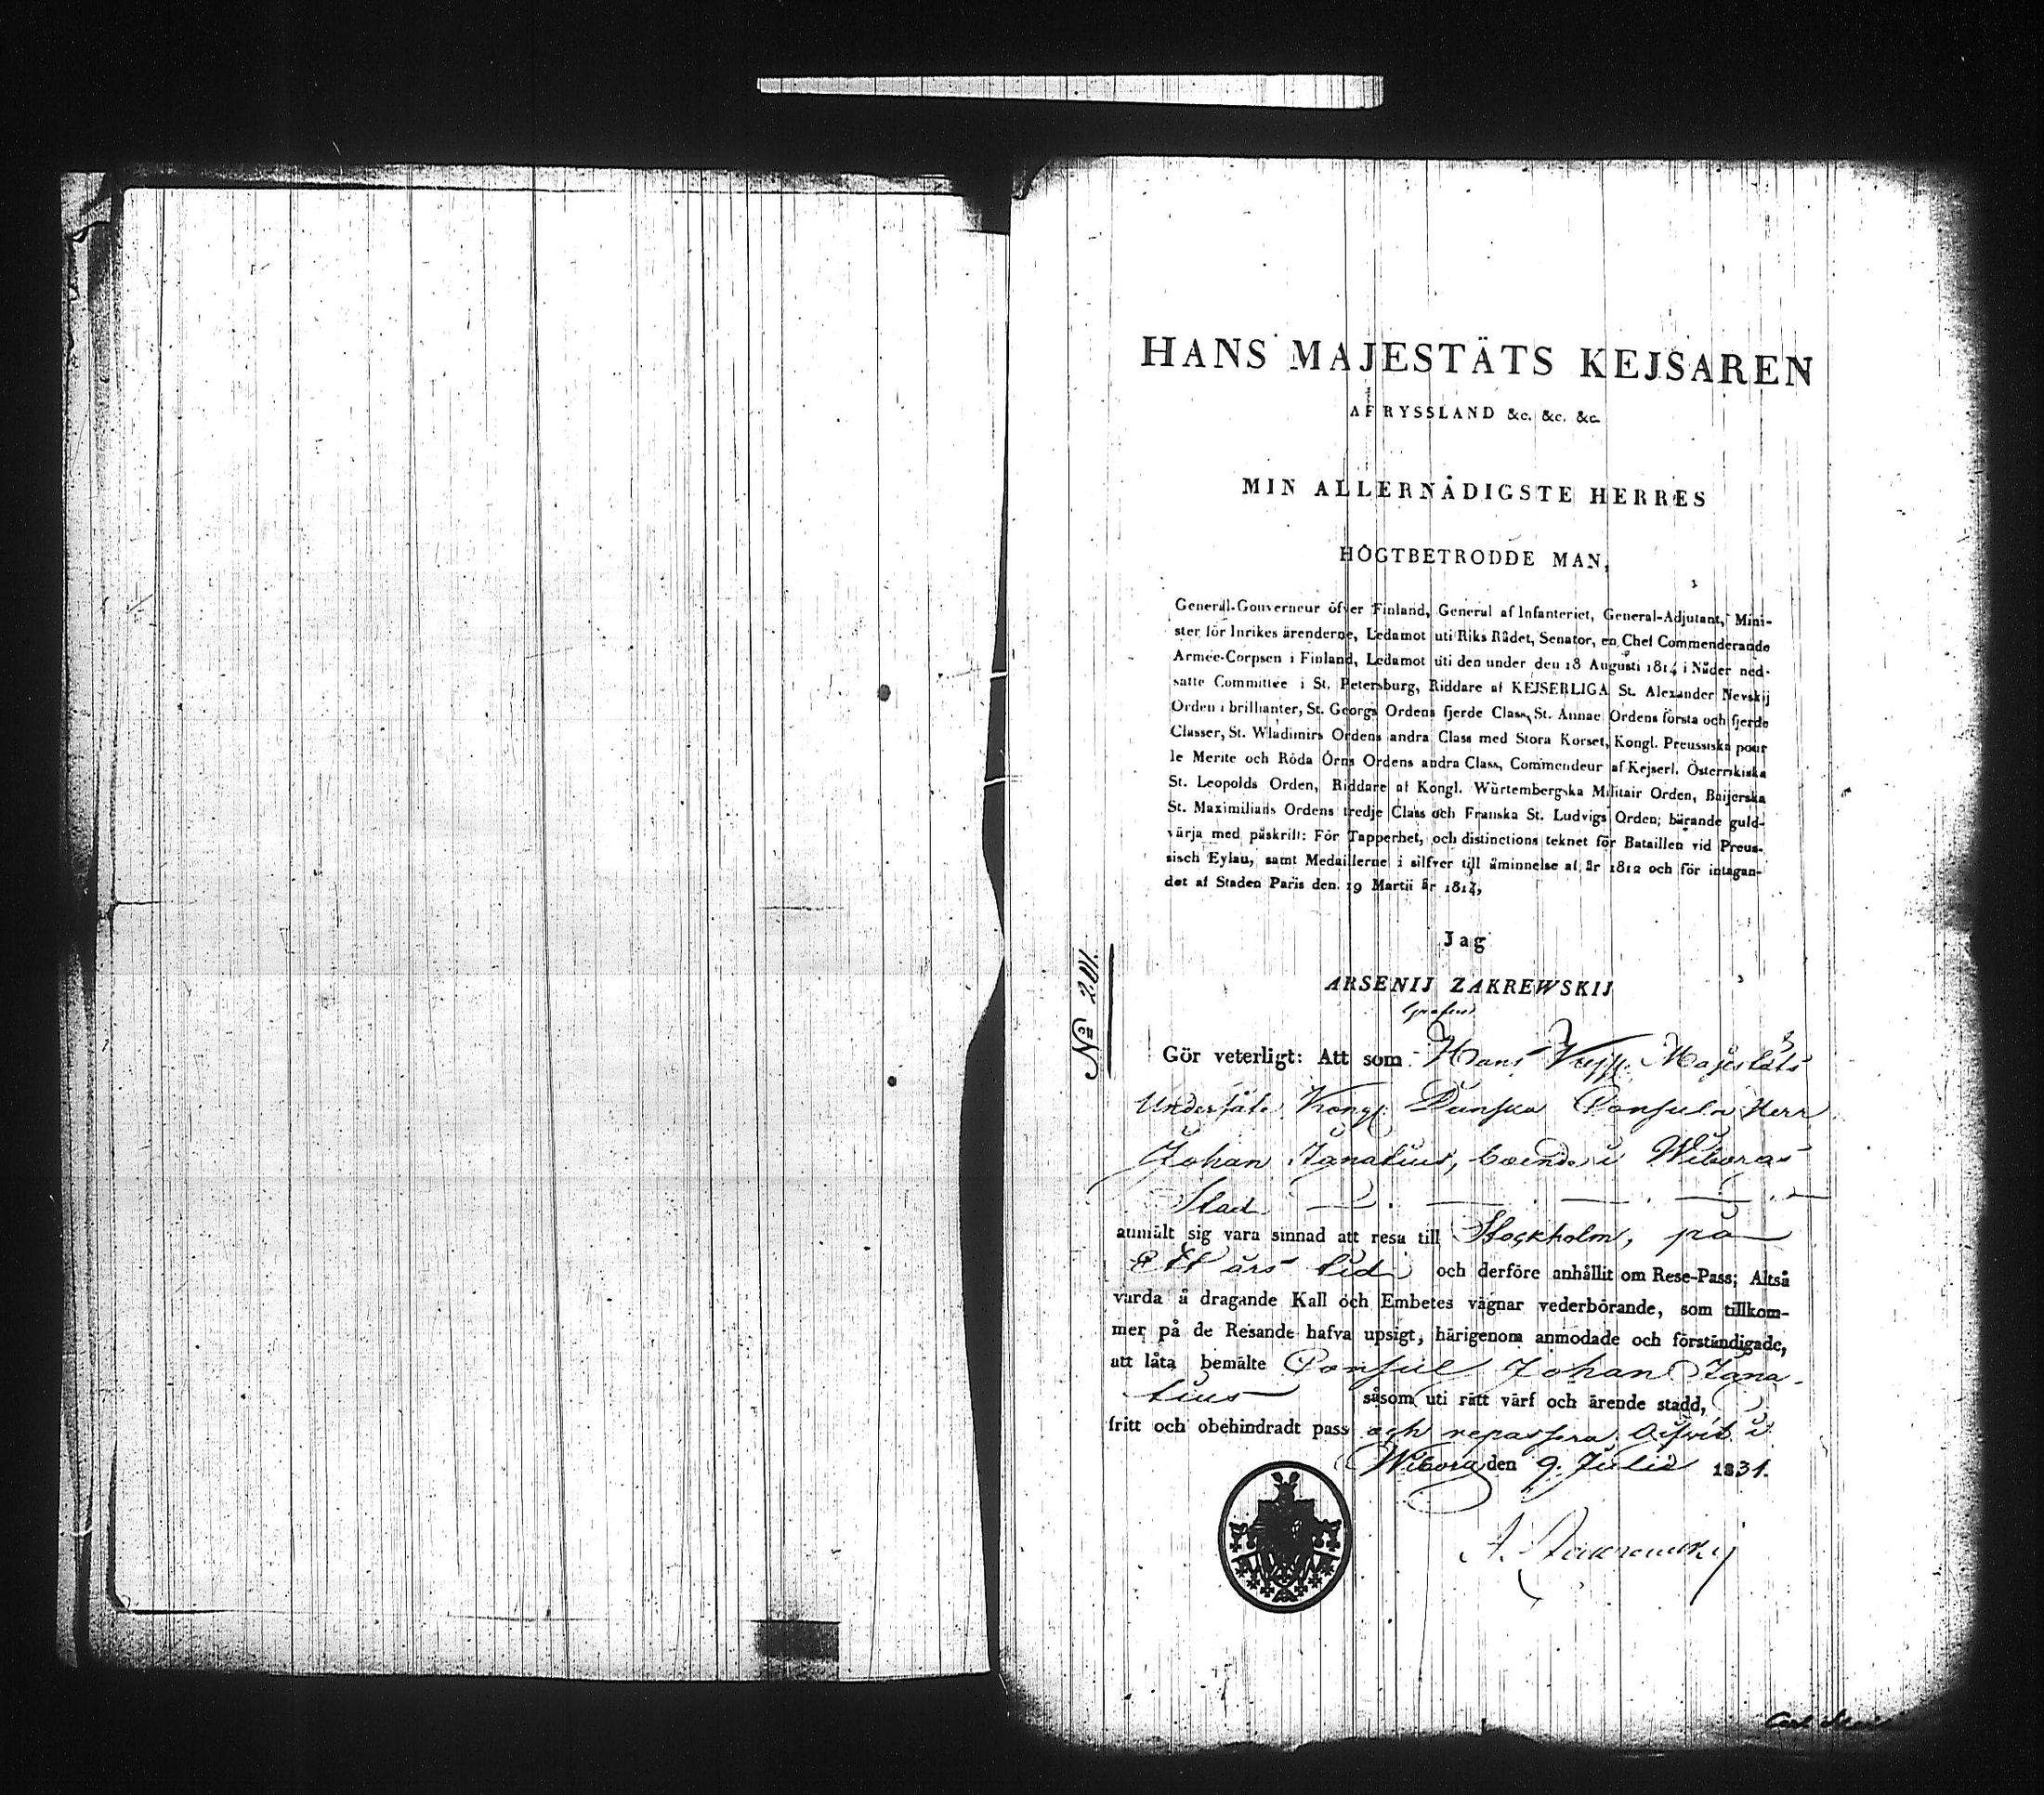 HANS MAJESTÄTS KEJSAREN
AF RYSSLAND &c. &c. &c.
MIN ALLERNÅDIGSTE HERRES
HÖGTBETRODDE MAN,
General-Gouverneur öfver Finland, General af Infanteriet, General-Adjutant, Mini-
ster för Inrikes ärenderne, Ledamot uti Riks Rådet, Senator, en Chef Commenderande
Armée-Corpsen i Finland, Ledamot uti den under den 18 Augusti 1814 i Nåder ned-
satte Committée i St. Petersburg, Riddare af KEJSERLIGA St. Alexander Nevskij
Orden i brillianter, St. Georgs Ordens fjerde Class, St. Annae Ordens första och fjerde
Classer, St. Wladimirs Ordens andra Class med Stora Korset, Kongl. Preussiska pour
le Merite och Röda Örns Ordens andra Class, Commendeur af Kejserl. Österrikiska
St. Leopolds Orden, Riddare af Kongl. Würtembergska Militair Orden, Baijerska
St. Maximilians Ordens tredje Class och Franska St. Ludvigs Orden; bärande guld-
värja med påskrift: För Tapperhet, och distinctions teknet för Bataillen vid Preus-
sisch Eylau, samt Medaillerne i silfver till åminnelse af år 1812 och för intagan-
det af Staden Paris den 19 Martii år 1814,
Jag
ARSENIJ ZAKREWSKIJ
Grefve
No 201.
Gör veterligt: Att som Hans Kejs. Majestäts
Undersåte Kongl. Danska Consuln Herr
Johan Ignatius, boende i Wiborgs
Stad
anmält sig vara sinnad att resa till Stockholm, på
Ett års tid och derföre anhållit om Rese-Pass; Altså
varda å dragande Kall och Embetes vägnar vederbörande, som tillkom-
mer på de Resande hafva upsigt, härigenom anmodade och förständigade,
att låta bemälte Consul Johan Igna-
tius såsom uti rätt värf och ärende stadd,
fritt och obehindradt pass och repassera. Gifvit i
Wiborg den 9. Julii 1831.
A. Zakrewskij